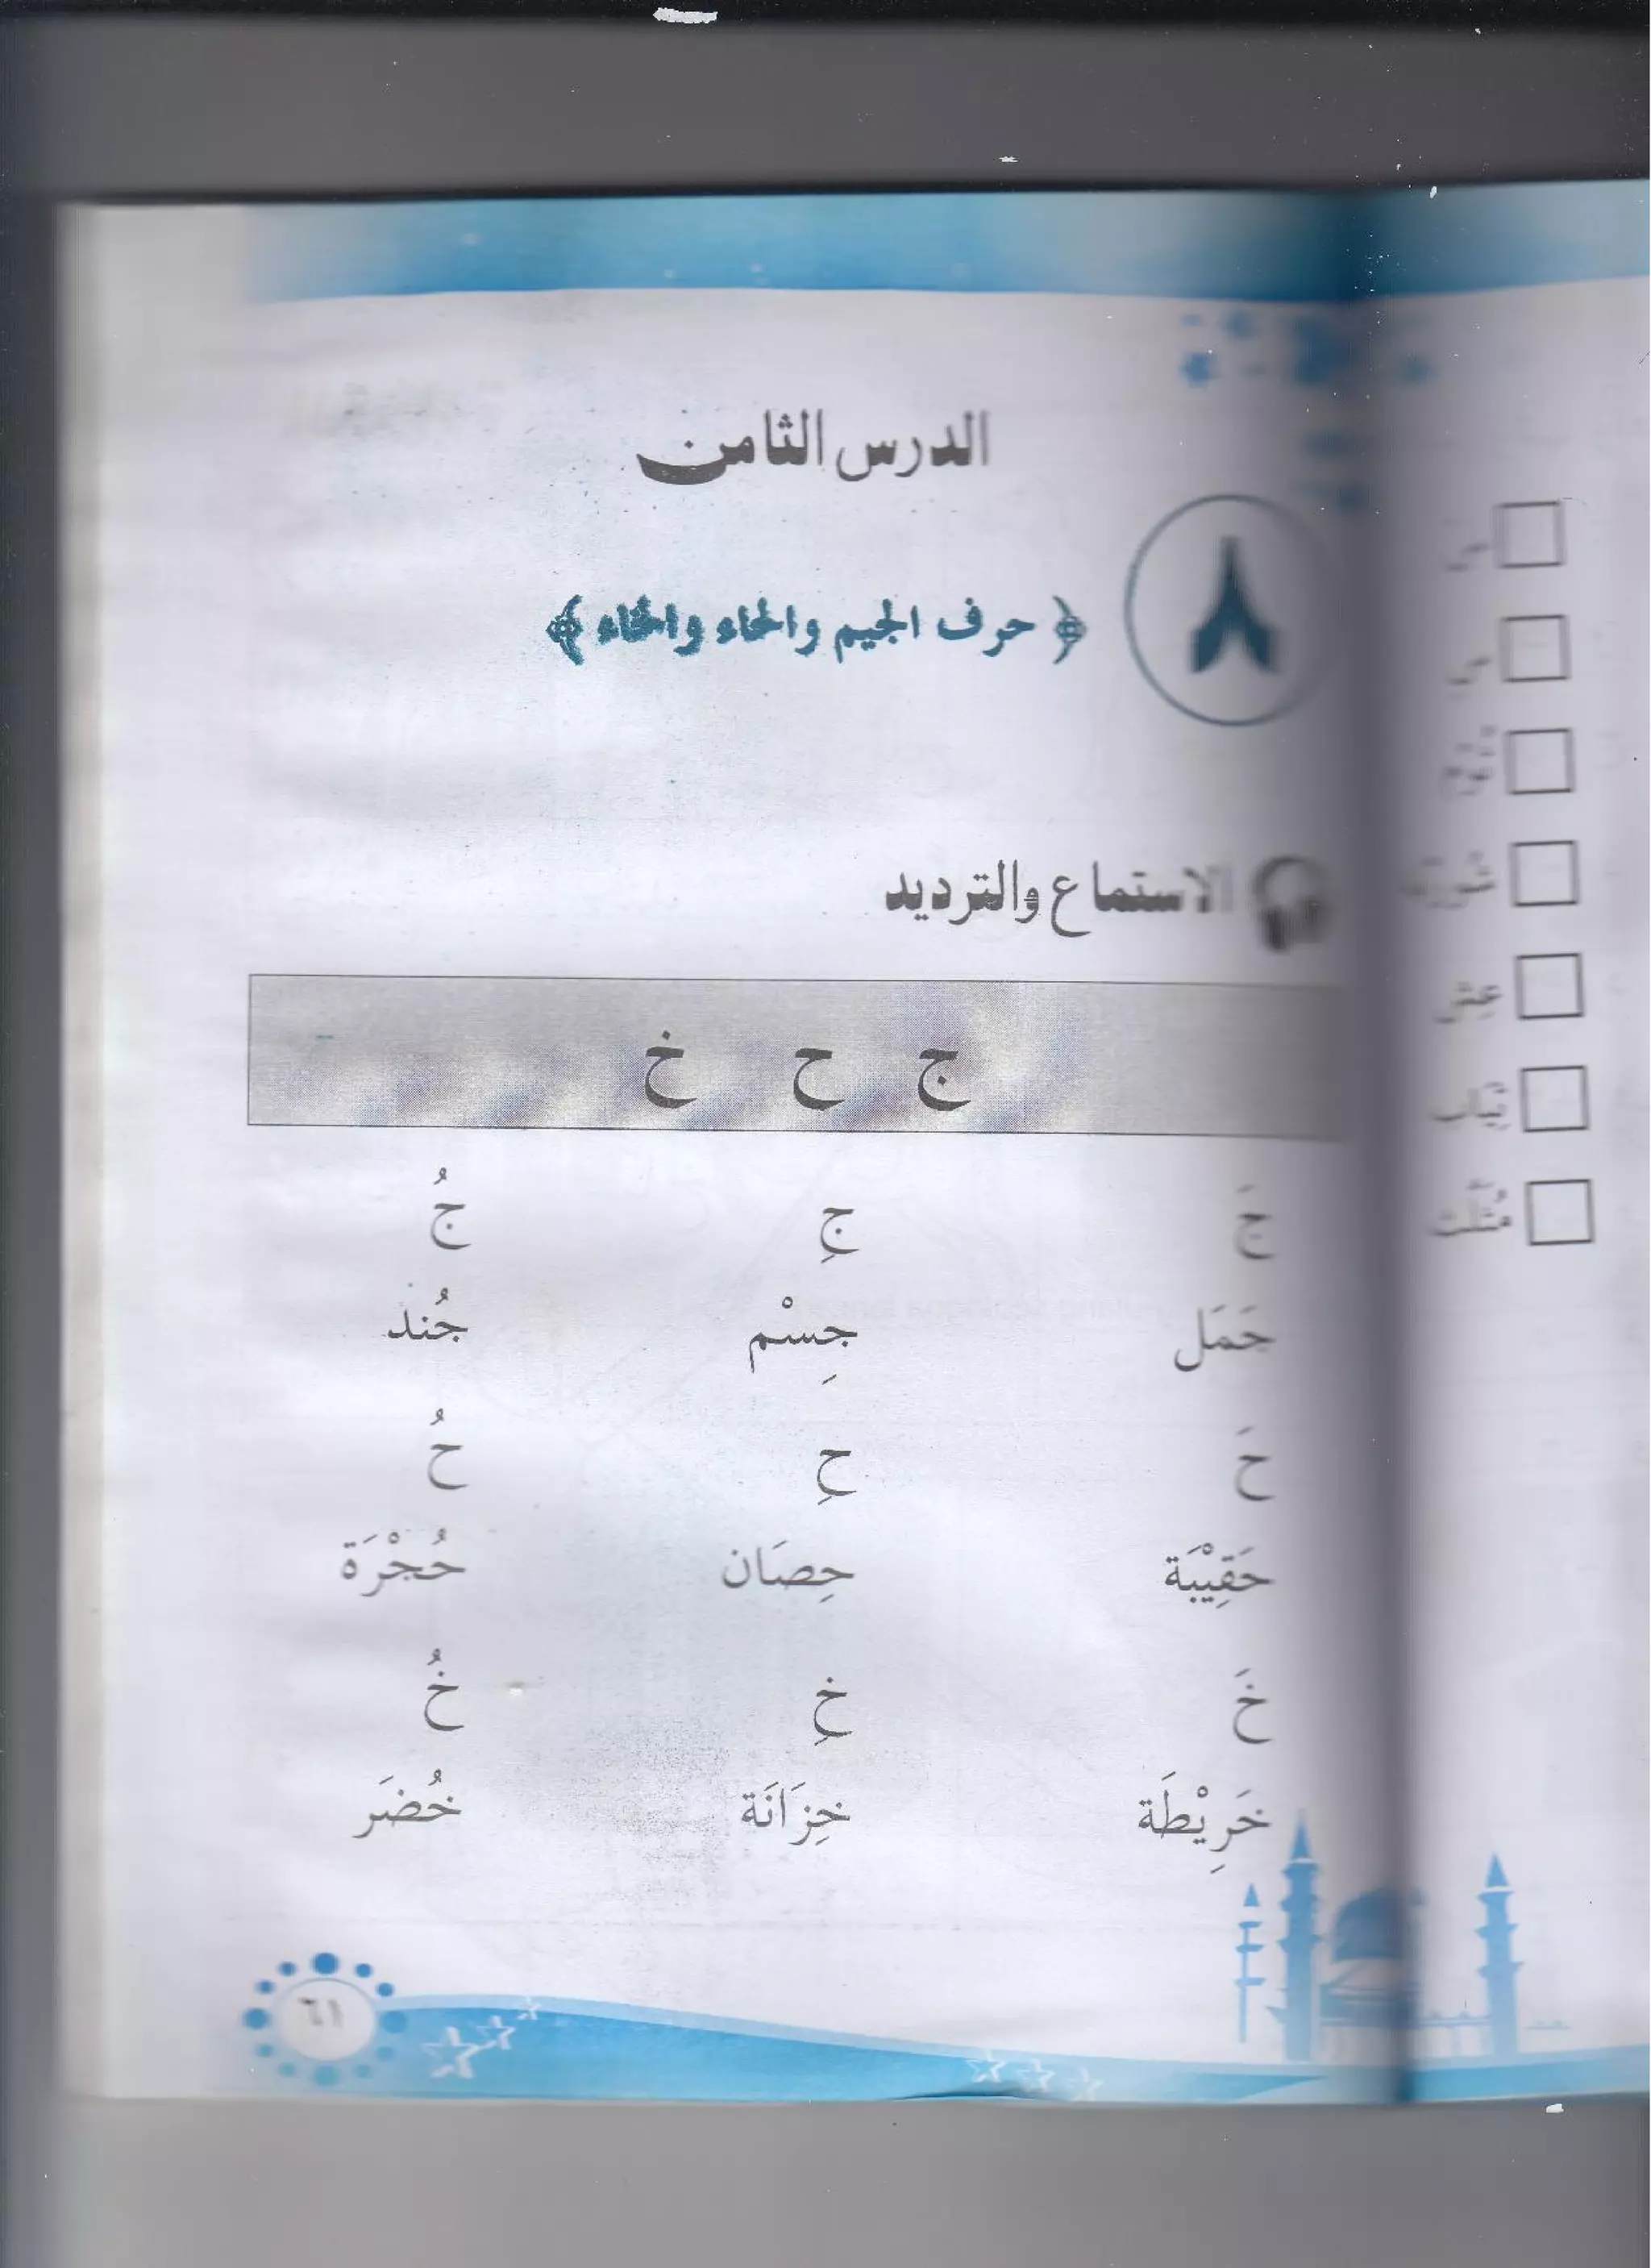 الدرس الثامن
٨
﴿ حرف الجيم والحاء والخاء ﴾
الاستماع والترديد
ج ح خ
جَ جِ جُ
جَمَل جِسْم جُند
حَ حِ حُ
حَقِيْبَة حِصَان حُجْرَة
خَ خِ خُ
خَرِيْطَة خِزَانَة خُضَر
٦١